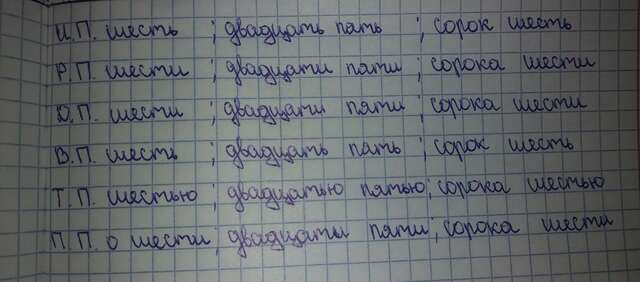 И.П. шесть ; двадцать пять ; сорок шесть
Р.П. шести ; двадцати пяти ; сорока шести
Д.П. шести ; двадцати пяти ; сорока шести
В.П. шесть ; двадцать пять ; сорок шесть
Т.П. шестью ; двадцатью пятью ; сорока шестью
П.П. о шести ; двадцати пяти ; сорока шести